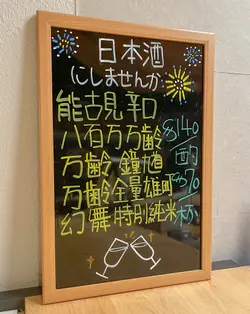 日本酒
にしませんか
能古見 辛口
八百万 万齢 $140
万齢 鐘馗 /酌
万齢 全量雄町 $70
幻舞 特別純米 杯